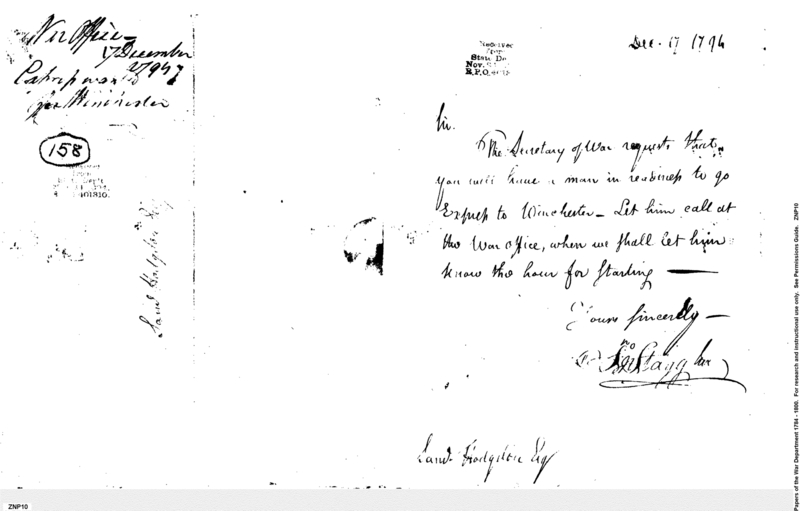 War Office
17 December
1794
Express wanted
for Winchester
158
Saml Hodgdon Esq
Received
from
State De
Nov.
R.P.O.
Dec. 17 1794
Sir.
The Secretary of War requests that
you will have a man in readiness to go
Express to Winchester – Let him call at
the War office, when we shall let him
know the hour for starting —
Yours sincerely —
Jno Stagg Junr
Saml. Hodgdon Esq
ZNP10
Papers of the War Department 1784 - 1800. For research and instructional use only. See Permissions Guide. ZNP10